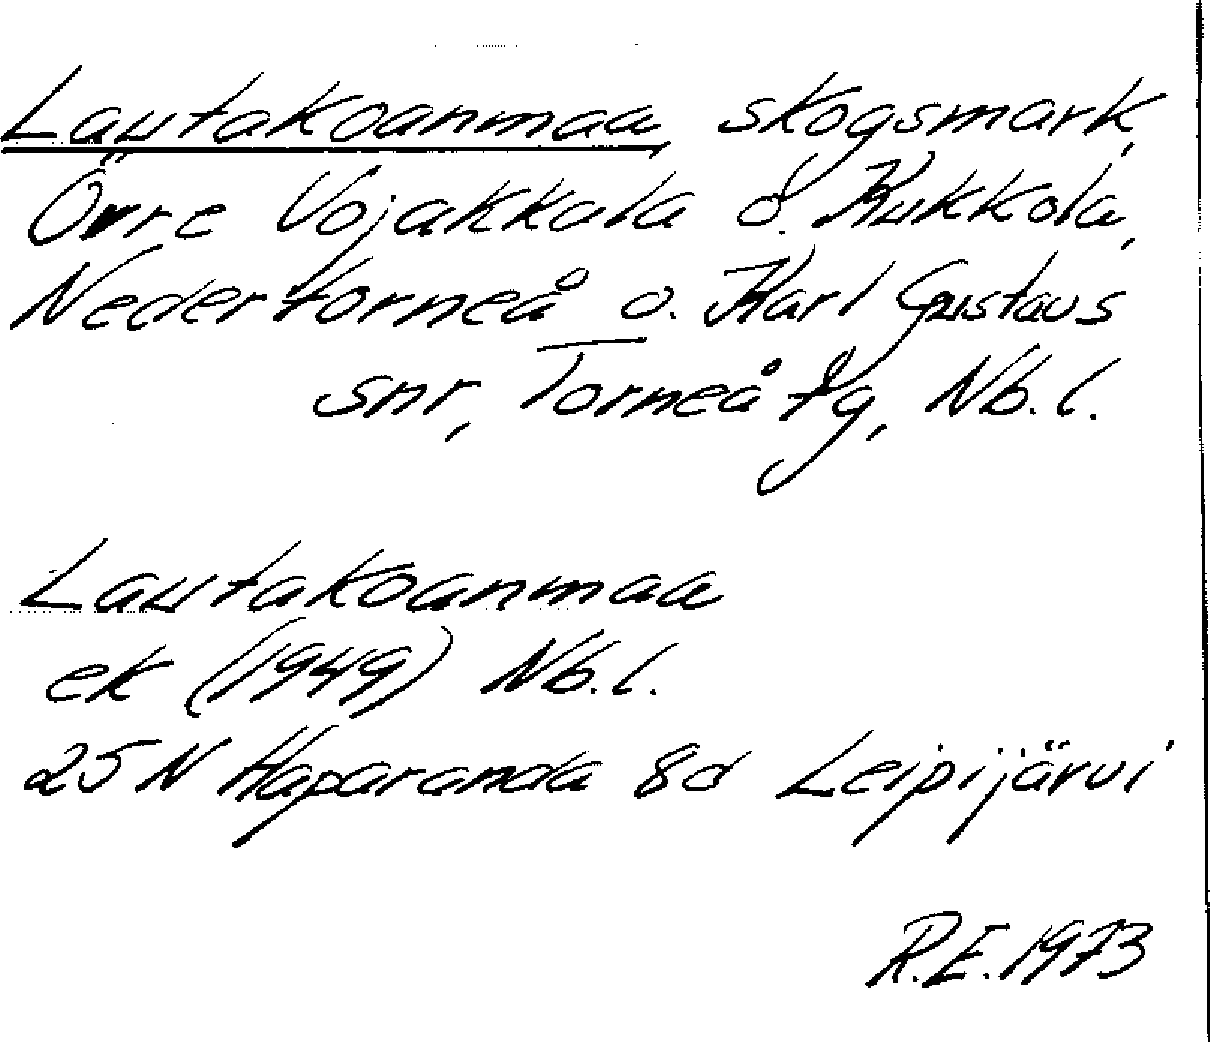 Lautakoanmaa, skogsmark,
Övre Vojakkala o. Kukkola,
Nedertorneå o. Karl Gustavs
snr, Torneå tg, Nb.l.
Lautakoanmaa
ek (1949) Nb.l.
25 N Haparanda 8d Leipijärvi
R.E. 1973